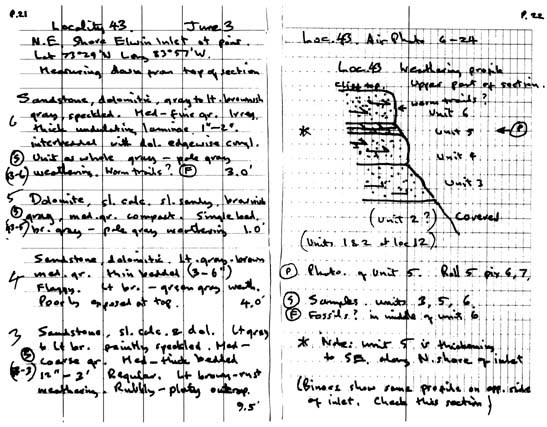 P.21
Locality 43. June 3
N.E. Shore Elwin Inlet at point
Lat 73°29'N Long 83°57'W.
Measuring down from top of section
Sandstone, dolomitic, gray to lt. brownish
gray, speckled. Med-fine gr. Irreg.
6 thick undulating laminae 1"-2".
interbedded with dol. edgewise congl.
(S) Unit as whole gray - pale gray
(43-6) weathering. Worm trails? (F) 3.0'
5 Dolomite, sl. calc. sl. sandy, brownish
(S) gray, med. gr. compact. Single bed,
(43-5) br. gray - pale gray weathering 1.0'
Sandstone, dolomitic. Lt. gray-brown
med. gr. thin bedded (3-6")
4 Flaggy. Lt br. - green gray weath.
Poorly exposed at top. 4.0'
3 Sandstone, sl. calc. & dol. Lt gray
to lt br. faintly speckled. Med-
(S) coarse gr. Med-thick bedded
(43-3) 12" - 3' Regular. Lt brown-rust
weathering. Rubbly - platy outcrop.
9.5'
P. 22
Loc. 43. Air Photo G-24
Loc. 43 Weathering profile
Cliff top Upper part of section.
worm trails?
Unit 6
* Unit 5 (P)
Unit 4
Unit 3
(Unit 2?) Covered
(Units 1 & 2 at loc 12)
(P) Photo. of Unit 5. Roll 5 pix 6, 7,
(S) Samples. units 3, 5, 6.
(F) Fossils? in middle of unit 6
* Note: unit 5 is thickening
to SE, along N. shore of inlet
(Binocs show same profile on opp. side
of inlet. Check this section)